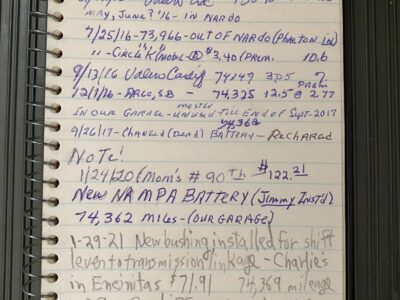 MAY, JUNE? '16 - IN NARDO
7/25/16 - 73,966 - OUT OF NARDO (PHAETON In)
11 - Circle "K" (MOBIL - $3.40 (PREM. 10.6
9/13/16 Valero Cardiff 74249 3.05 7.
PREM
12/1/16 - ARCO, S.B - 74,325 12.5 @ 2.77
MOSTLY
IN OUR GARAGE - UNUSED TILL END OF SEPT. 2017
9/26/17 - CHARGED (DEAD) BATTERY - RECHARGED
NOTE!
1/24/20 (MOM'S # 90th $122.21
NEW NAMPA BATTERY (JIMMY INST'D)
74,362 MILES - (OUR GARAGE)
1-29-21 New bushing installed for shift
lever to transmission linkage - Charlies
in Encinitas $71.91 74,369 mileage